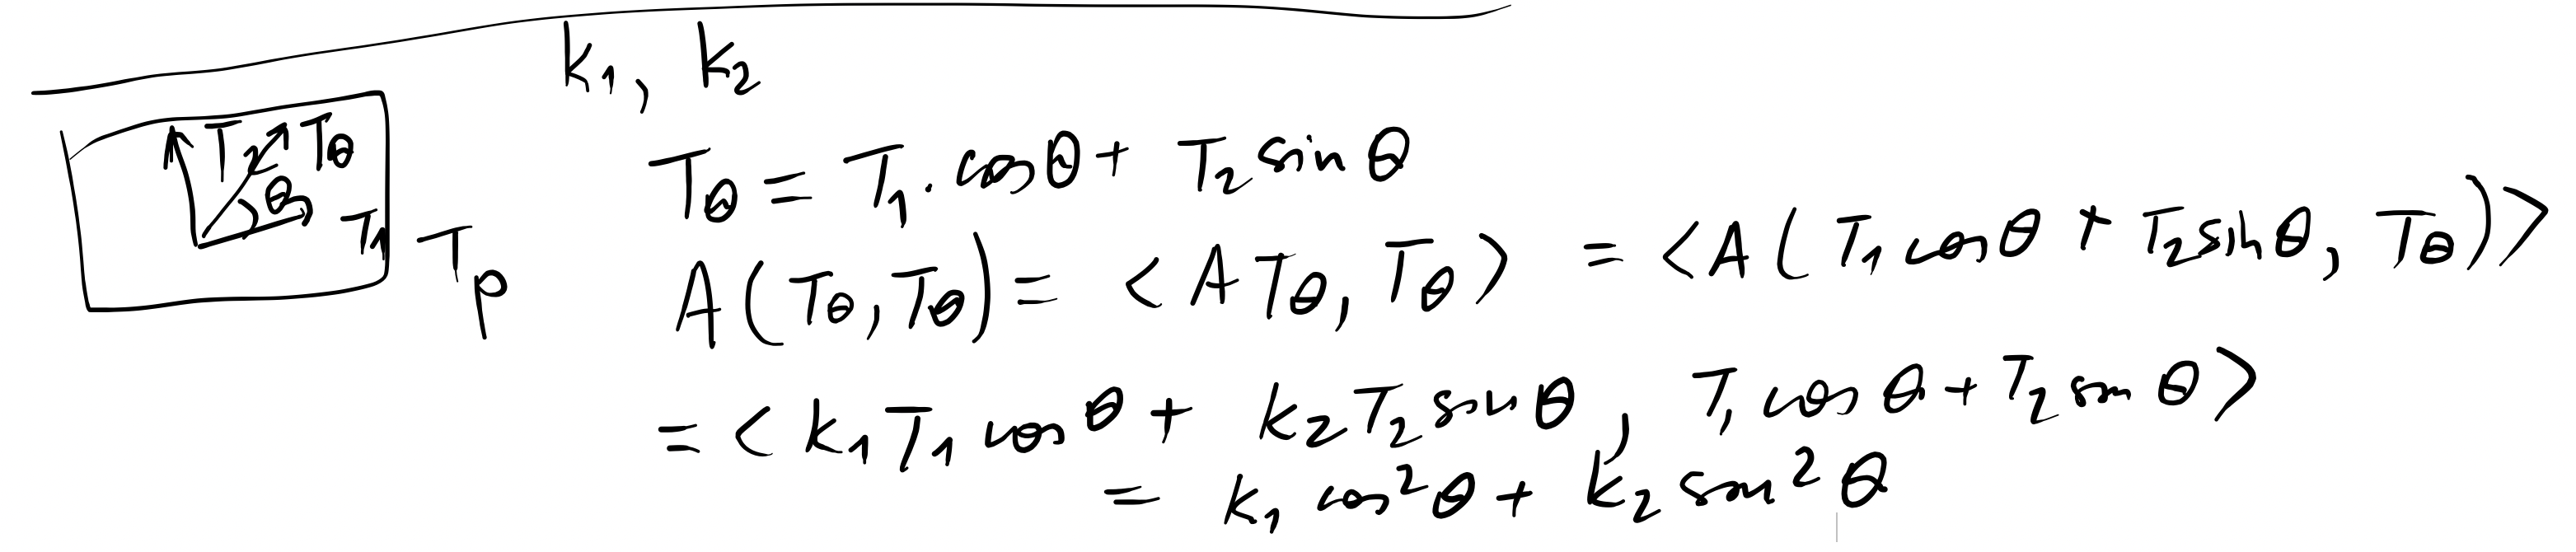 k₁, k₂
T₂ T_θ
θ
T₁
T_p
T_θ = T₁ · cosθ + T₂ sin θ
A(T_θ, T_θ) = <A T_θ, T_θ> = <A(T₁ cosθ + T₂ sinθ, T_θ)>
= <k₁T₁ cosθ + k₂T₂ sinθ, T₁ cosθ + T₂ sinθ>
= k₁ cos²θ + k₂ sin²θ